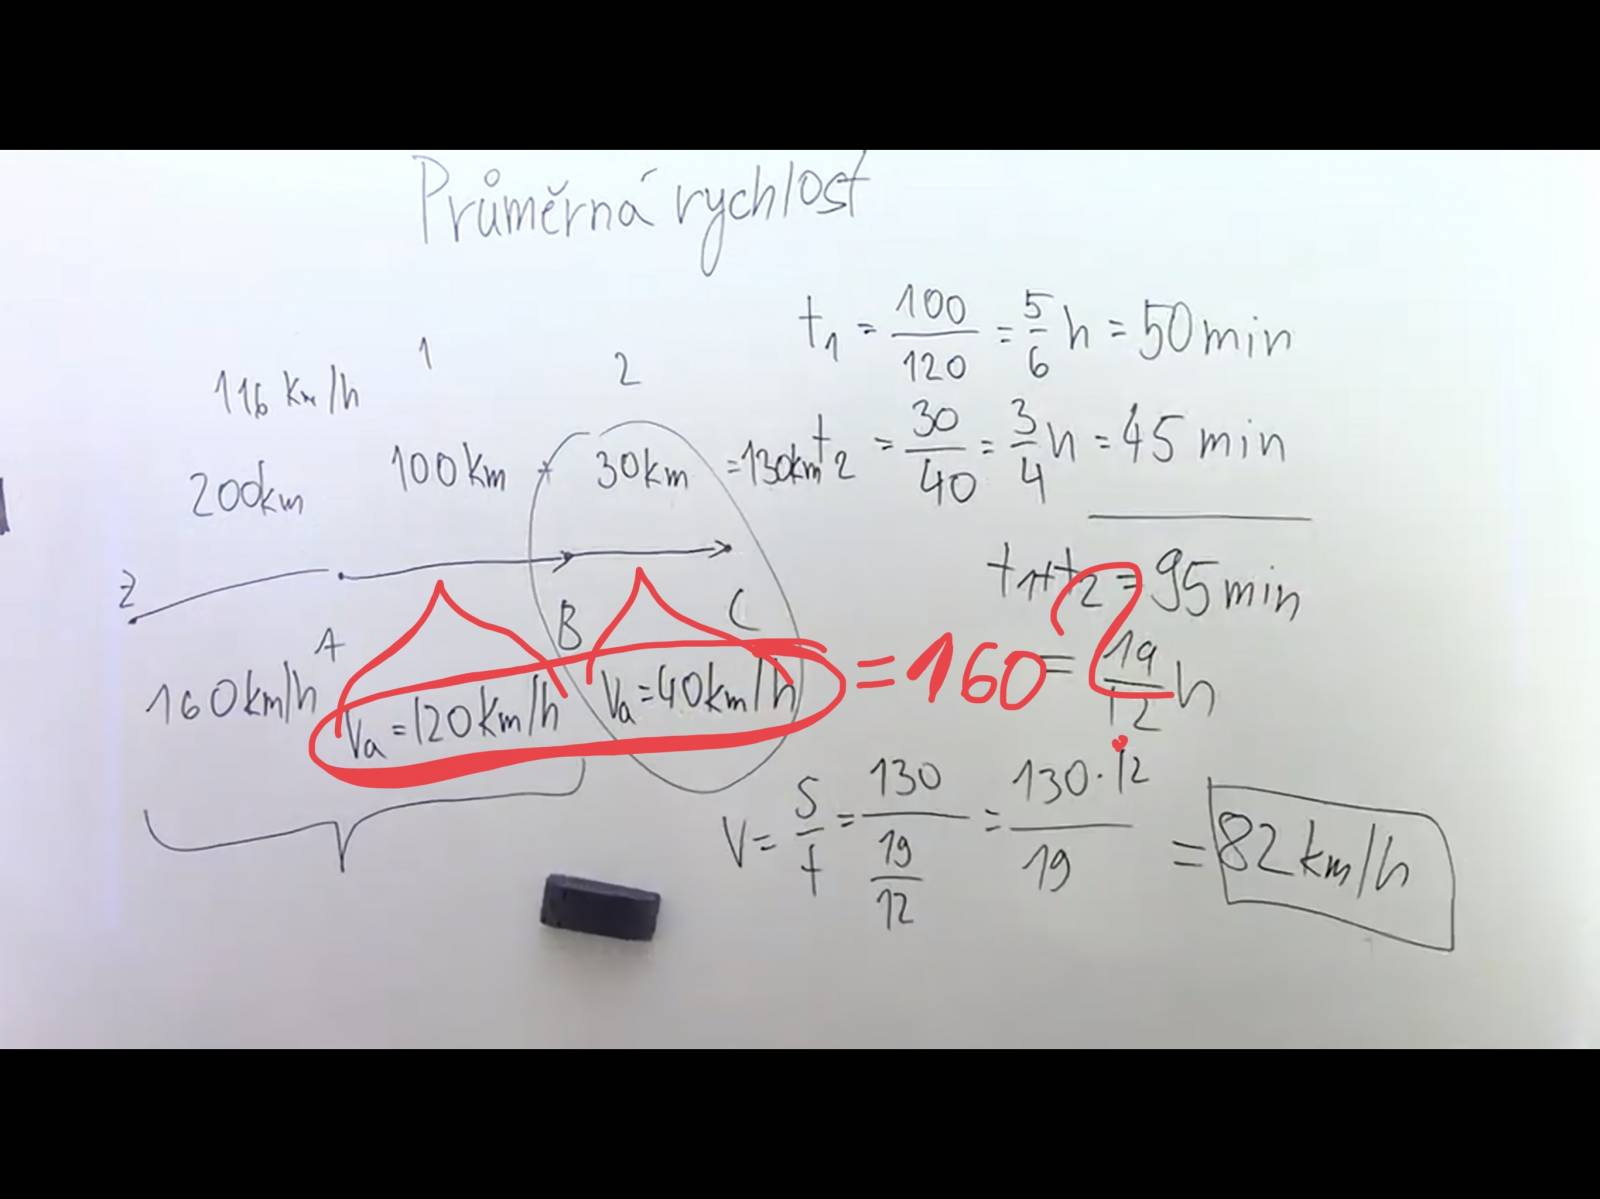 Průměrná rychlost
116 km/h
1
2
200km
100km + 30km = 130km
Z
A
B
C
160km/h
Va = 120km/h
Va = 40km/h
= 160
?
t1 = 100/120 = 5/6 h = 50 min
t2 = 30/40 = 3/4 h = 45 min
t1+t2 = 95 min
= 19/12 h
V = s/t = 130/(19/12) = 130·12/19 = 82 km/h